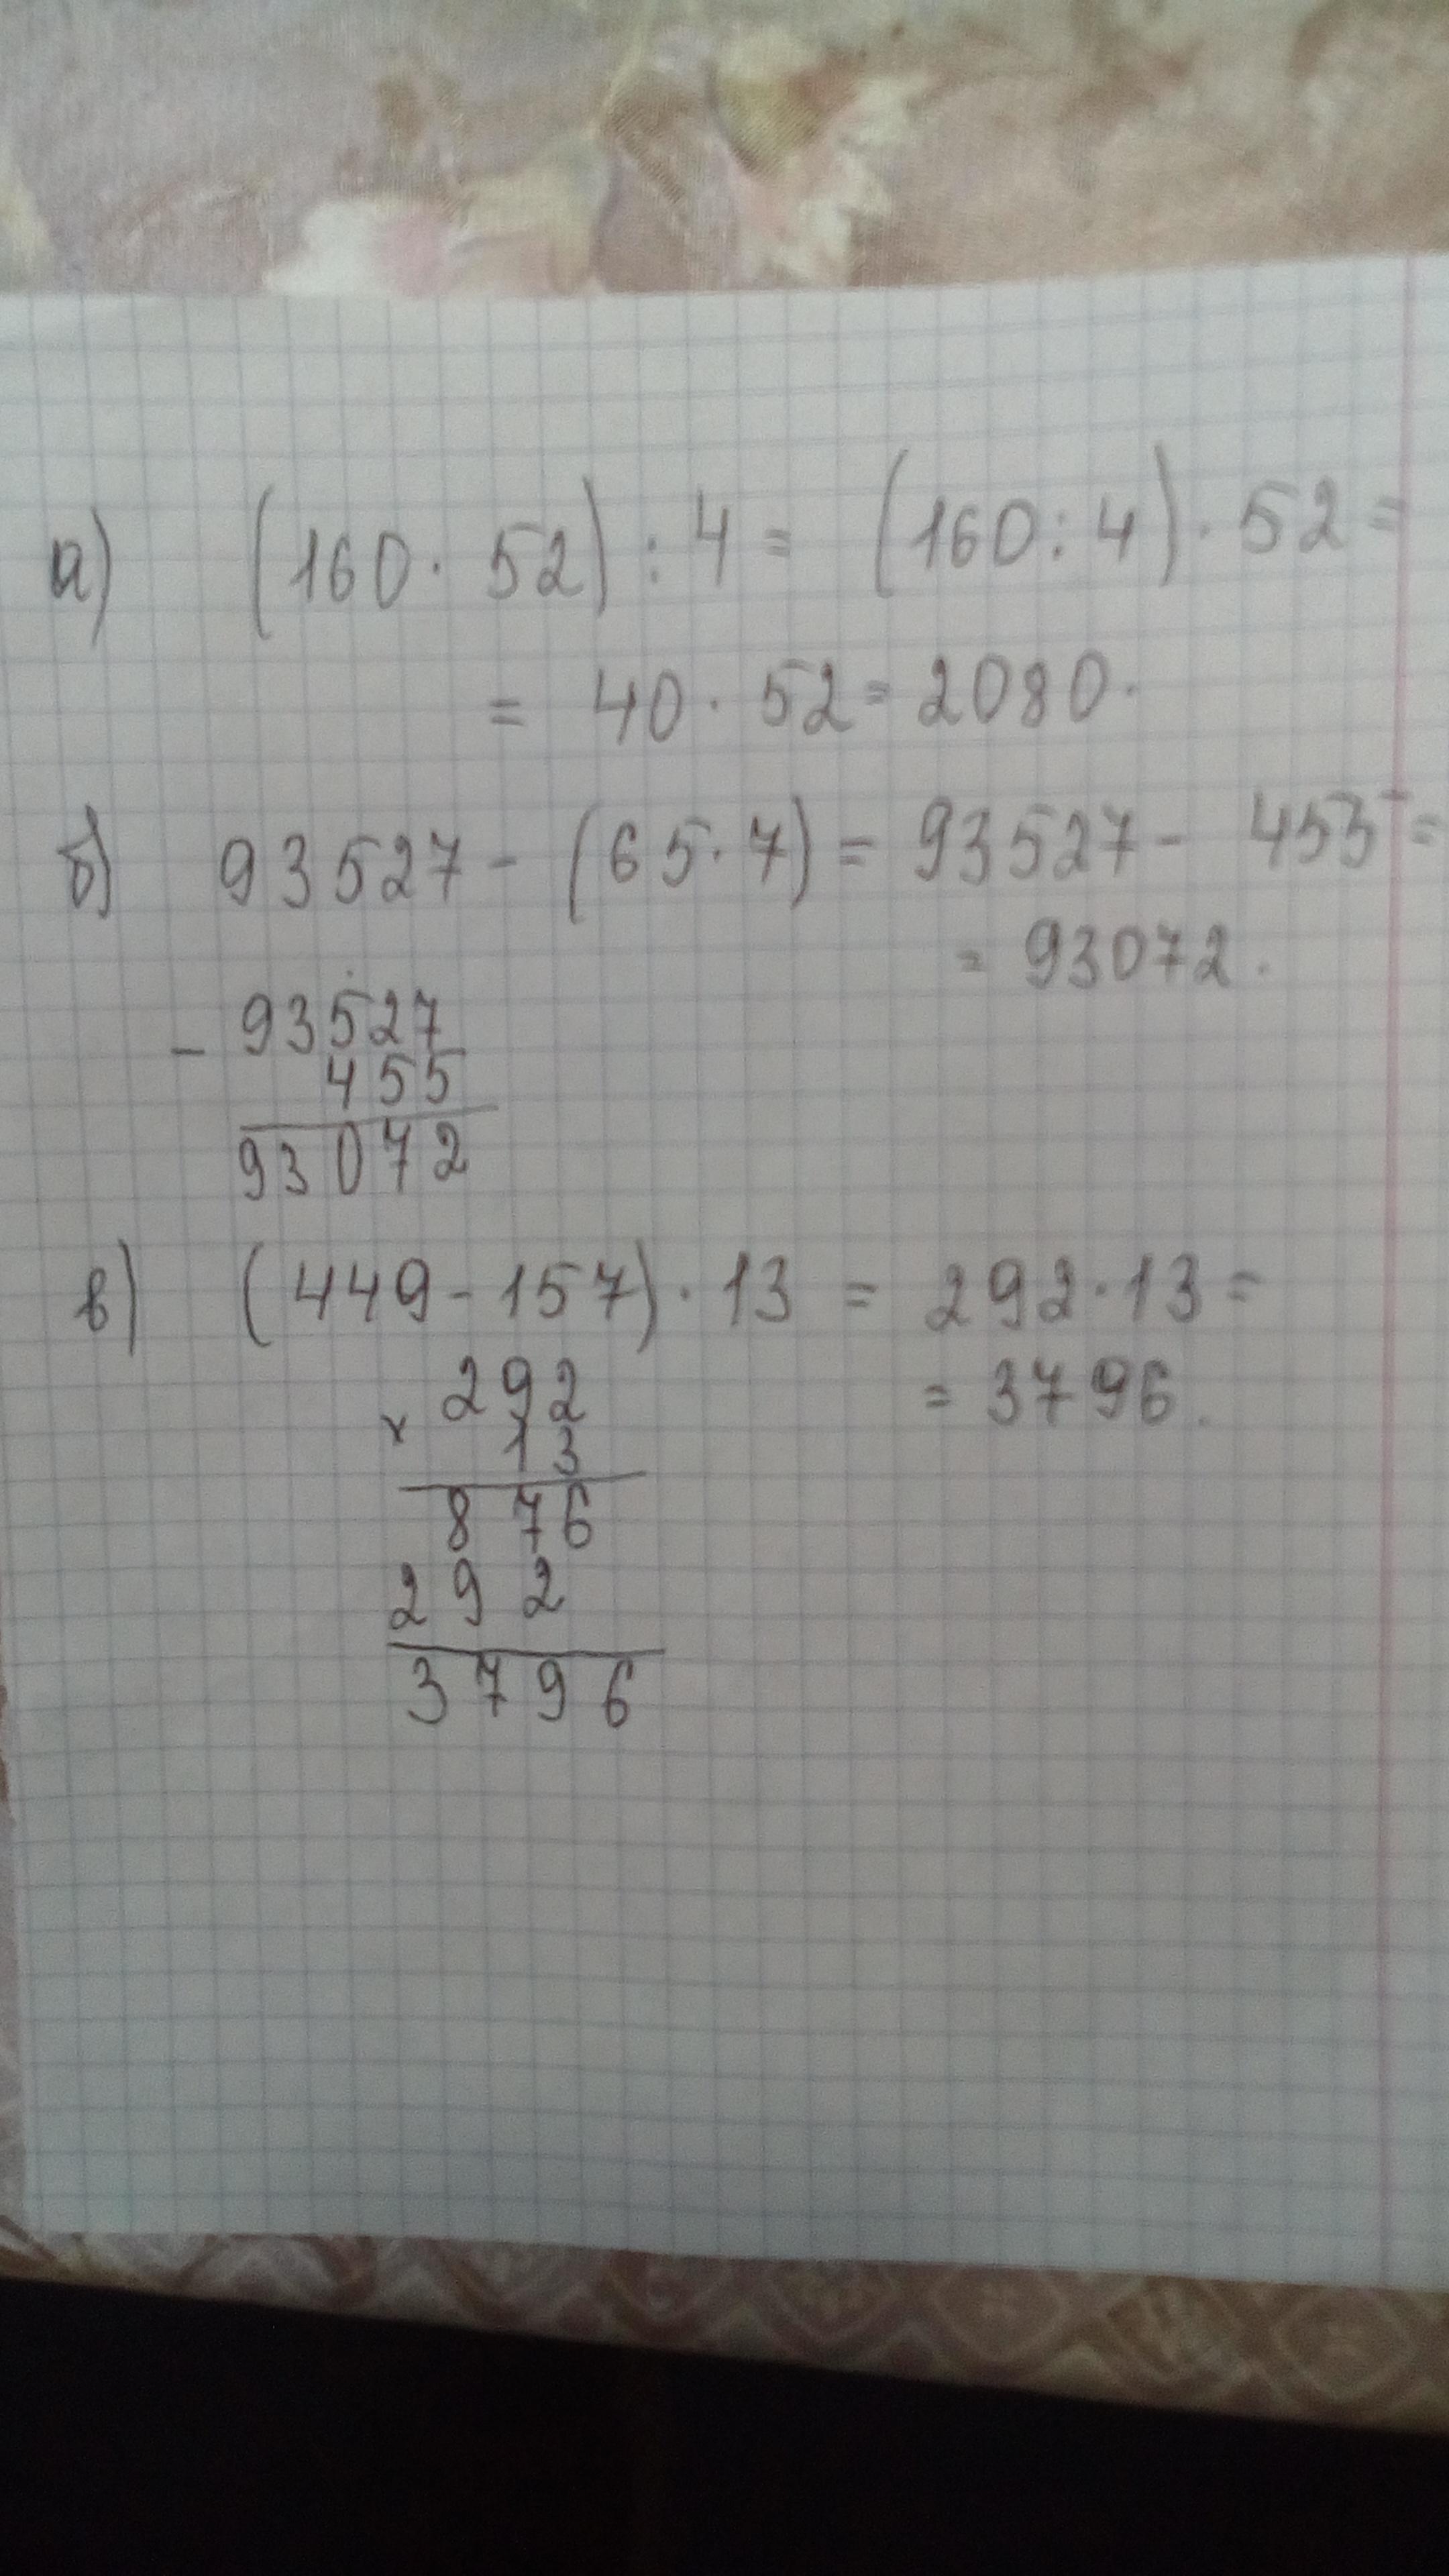 а) (160 · 52) : 4 = (160 : 4) · 52 =
= 40 · 52 = 2080.
б) 93527 - (65 · 7) = 93527 - 455 =
= 93072.
- 93527
455
93072
в) (449 - 157) · 13 = 292 · 13 =
= 3796.
× 292
13
876
292
3796